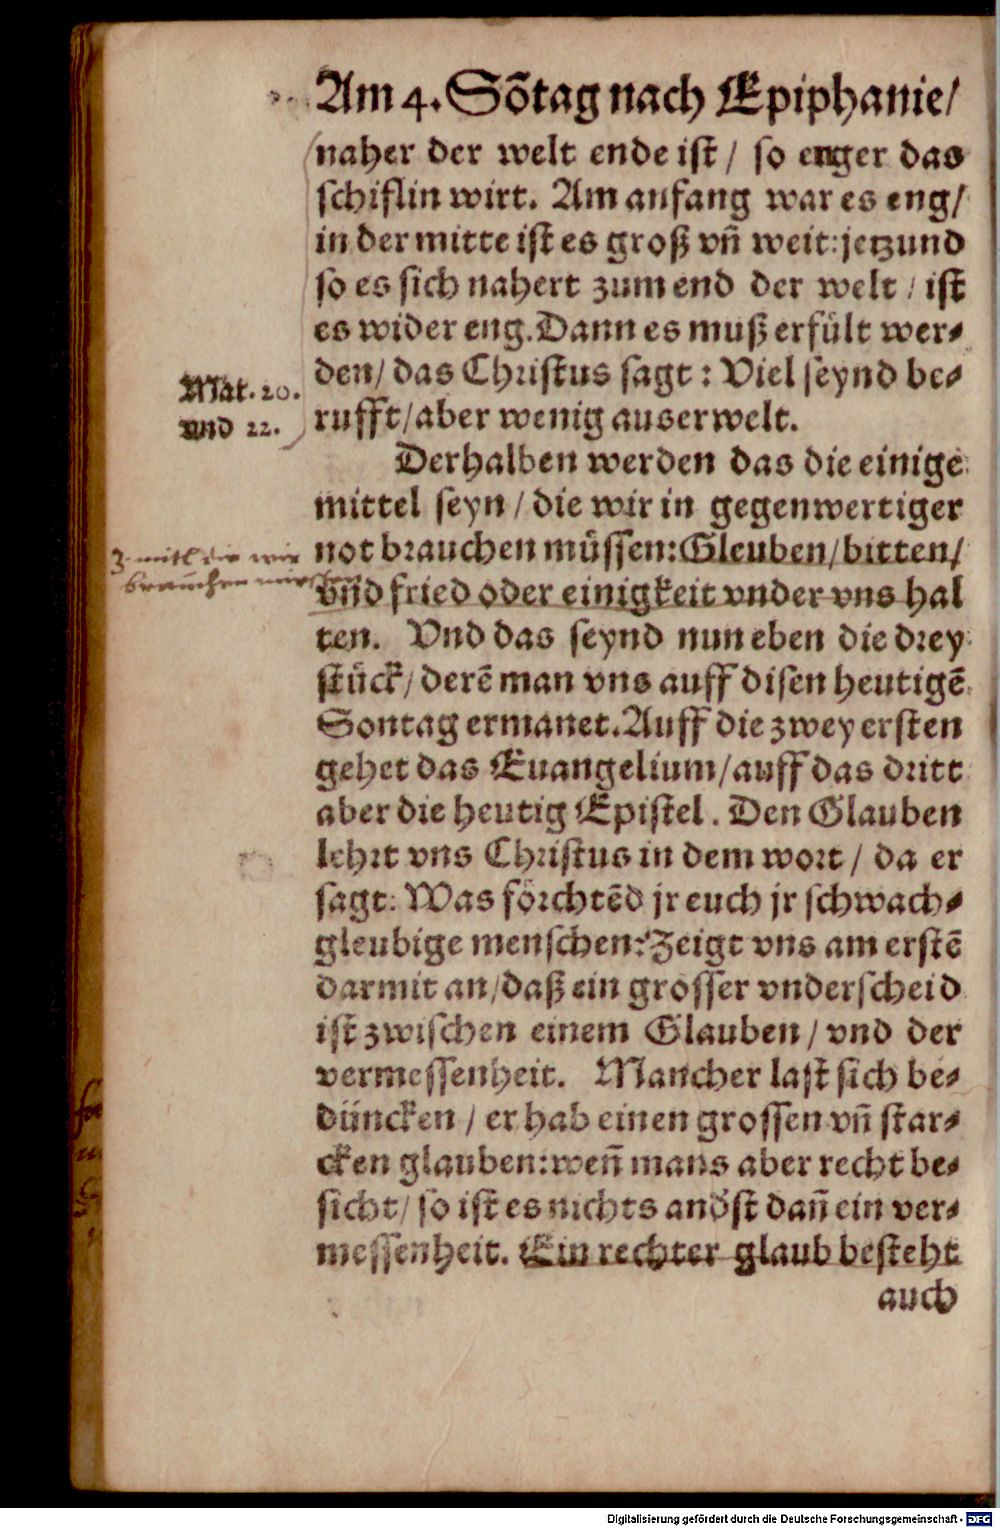 Am 4. Sõtag nach Epiphanie/
naher der welt ende ist / so enger das
schiflin wirt. Am anfang war es eng/
in der mitte ist es groß vñ weit: jetzund
so es sich nahert zum end der welt / ist
es wider eng. Dann es muß erfült wer-
den/ das Christus sagt: Viel seynd be-
Mat. 20.
vnd 22.
rufft/ aber wenig auserwelt.
Derhalben werden das die einige
mittel seyn / die wir in gegenwertiger
3 mitl die wir
brauchen müessen
not brauchen müssen: Gleuben/ bitten/
vñd fried oder einigkeit vnder vns hal
ten. Vnd das seynd nun eben die drey
stück/ derẽ man vns auff disen heutigẽ
Sontag ermanet. Auff die zwey ersten
gehet das Euangelium/ auff das dritt
aber die heutig Epistel. Den Glauben
lehrt vns Christus in dem wort / da er
sagt: Was förchtẽd jr euch jr schwach-
gleubige menschen? Zeigt vns am erstẽ
darmit an/ daß ein grosser vnderscheid
ist zwischen einem Glauben / vnd der
vermessenheit. Mancher last sich be-
düncken / er hab einen grossen vñ star-
cken glauben: weñ mans aber recht be-
sicht/ so ist es nichts andst dañ ein ver-
messenheit. Ein rechter glaub besteht
auch
Digitalisierung gefördert durch die Deutsche Forschungsgemeinschaft - DFG